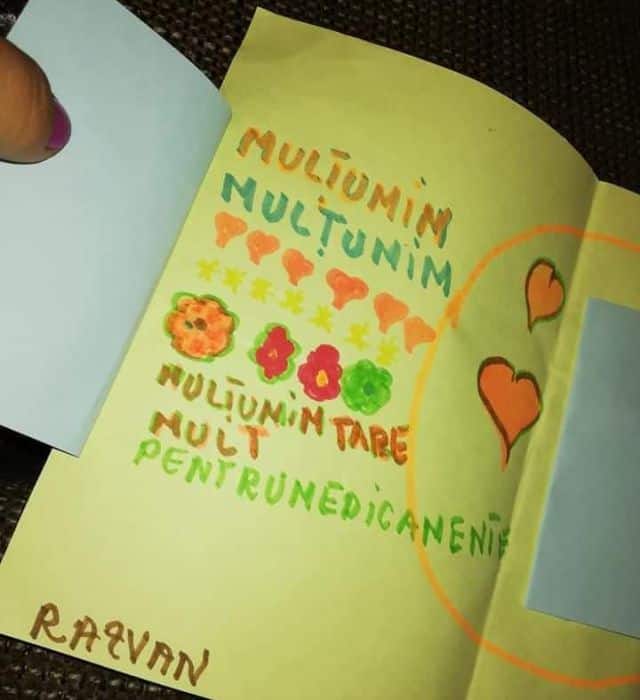 MULȚUMIM
MULȚUNIM
MULȚUMIN TARE
MULT
PENTRUNEDICANENTE
RAZVAN